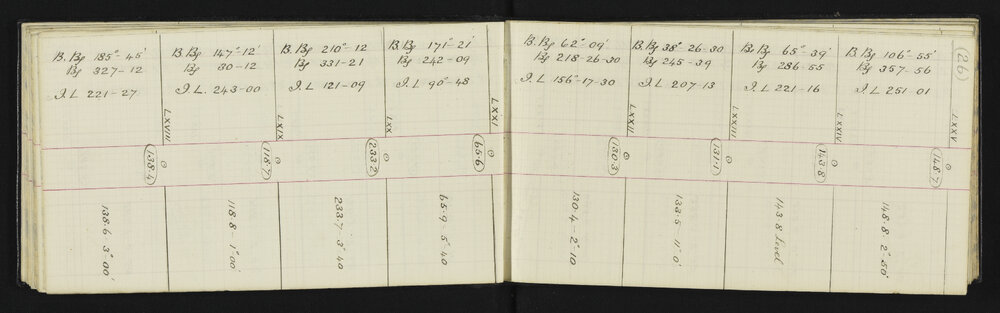 B. Bg 185°-45'
Bg 327-12
I.L 221-27
LXVIII
138.4
138.6 3°00'
B. Bg 147°-12'
Bg 30-12
I.L. 243-00
LXIX
118.7
118.8-1°00'
B. Bg 210°-12
Bg 331-21
I.L 121-09
LXX
233.2
233.7-3°40
B. Bg 171°-21'
Bg 242-09
I.L 90°-48
LXXI
65.6
65.9-5°40
B. Bg 62°-09'
Bg 218-26-30
I.L 156°-17-30
LXXII
130.3
130.4-2°10
B. Bg 38°-26-30
Bg 245-39
I.L 207-13
LXXIII
131.1
133.5-11°0'
B. Bg 65°-39'
Bg 286-55
I.L 221-16
LXXIV
143.8
143.8 Level
B. Bg 106°-55'
Bg 357-56
I.L 251 01
LXXV
148.7
148.8 2°50'
(26)